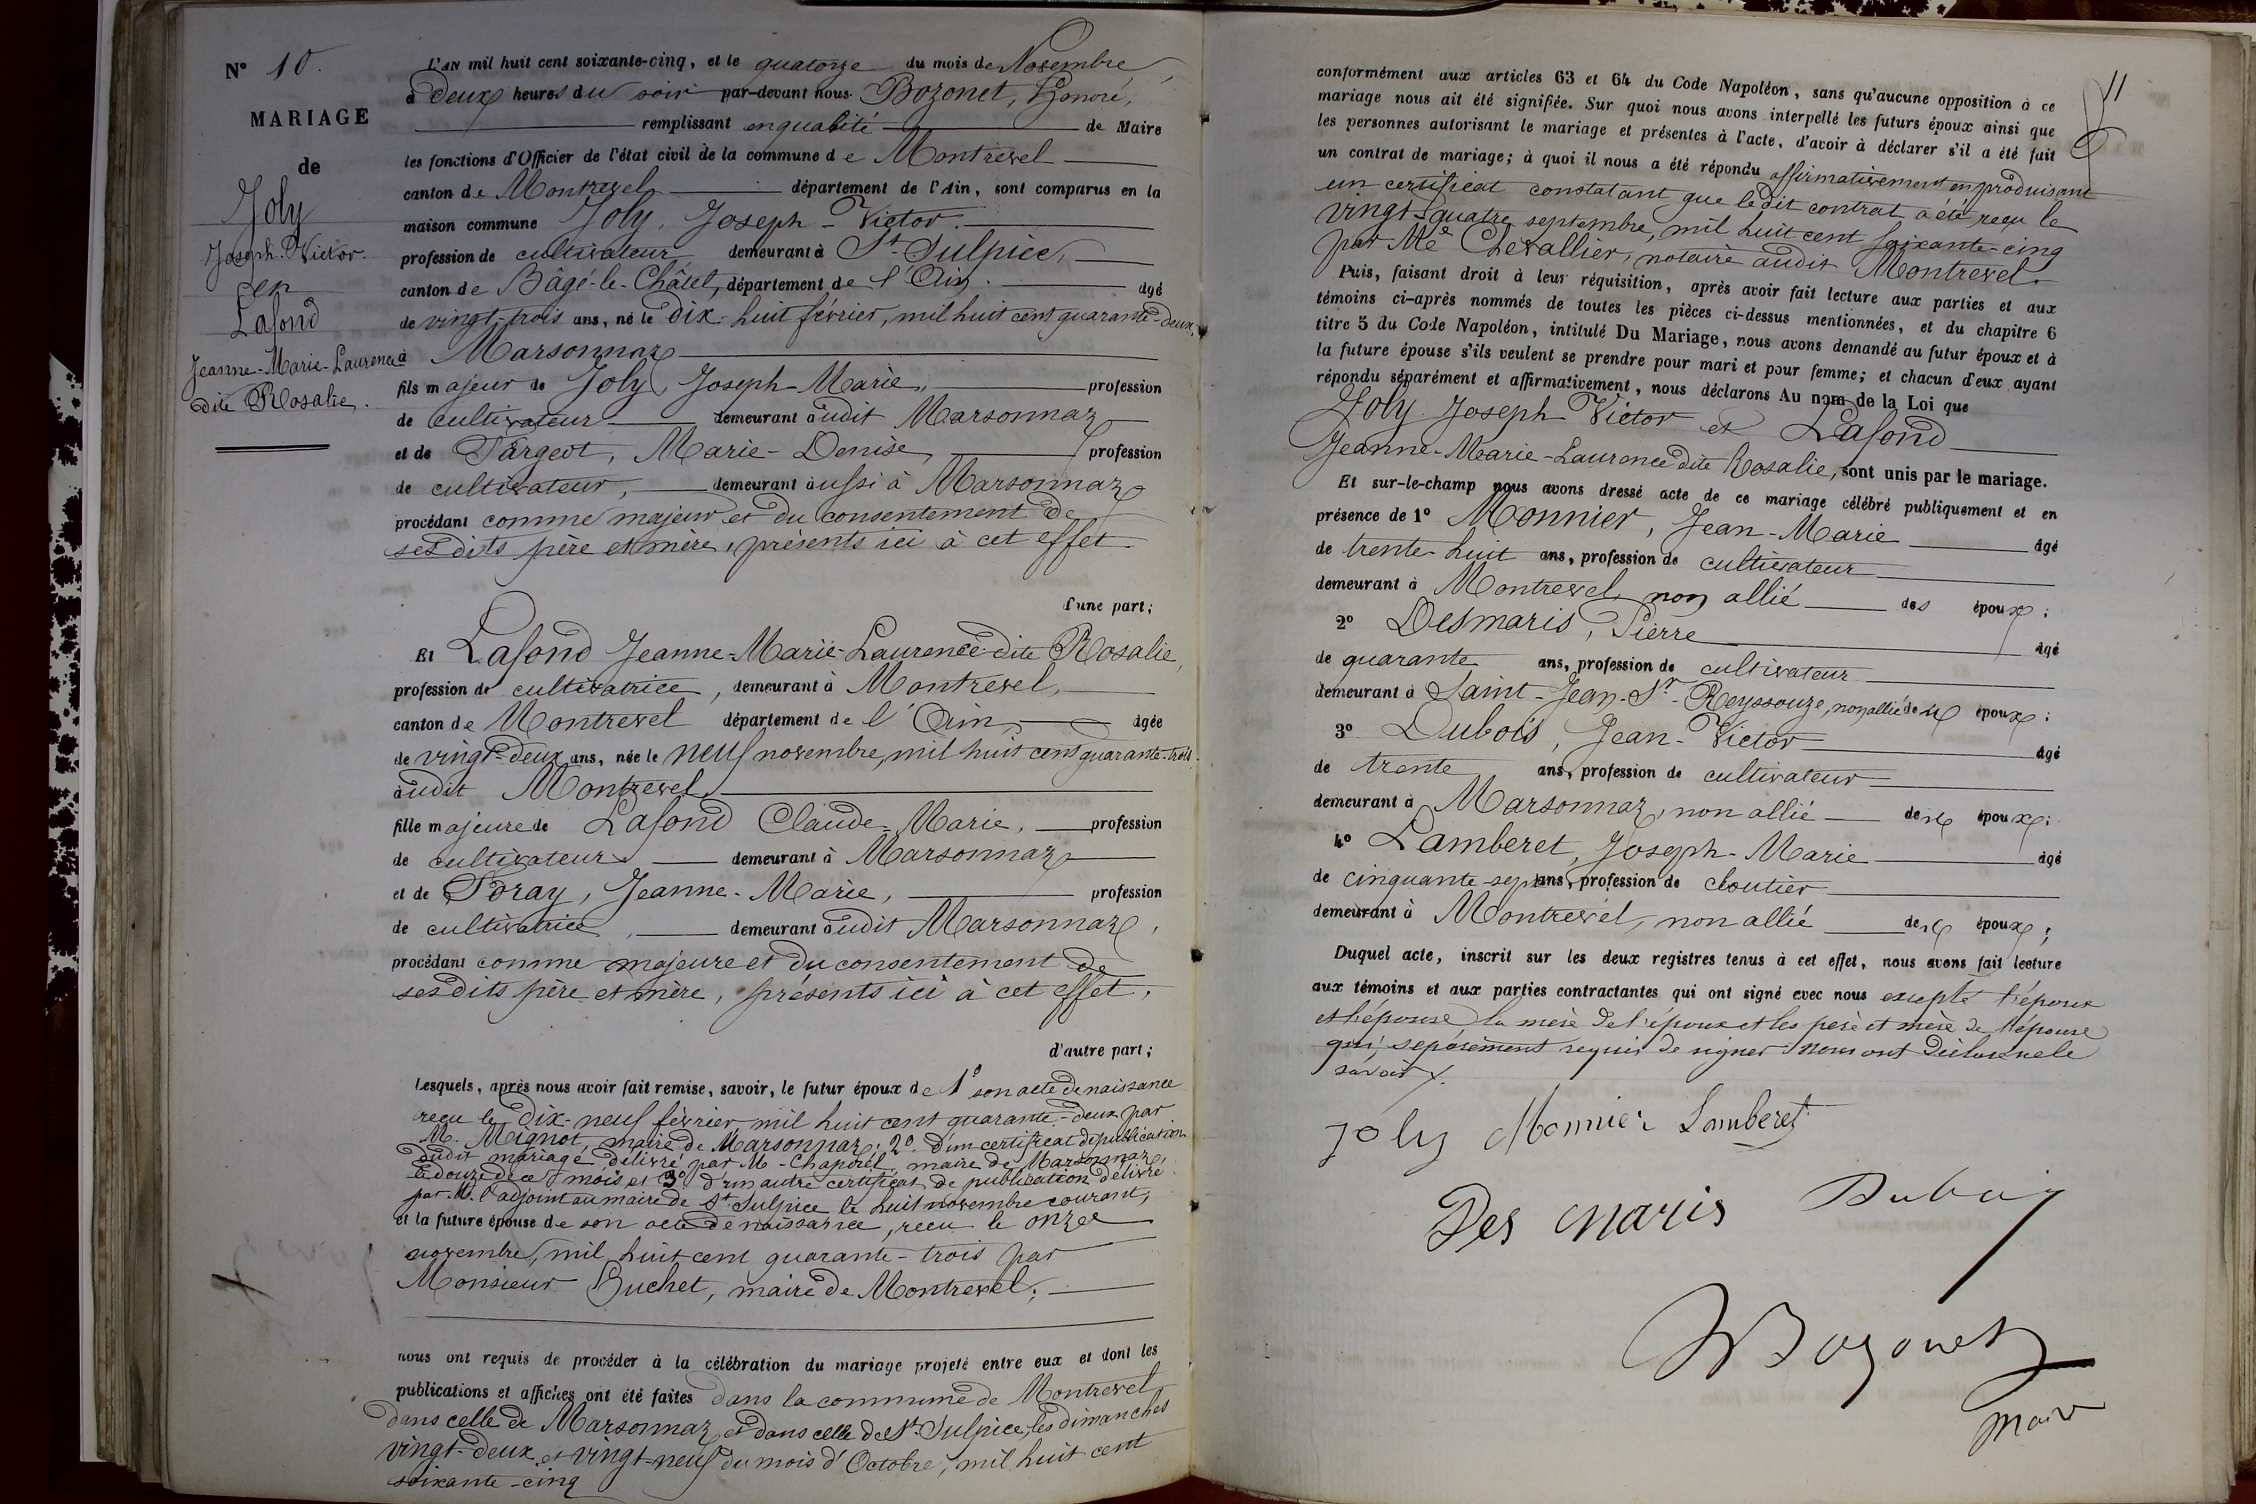 N° 10.
MARIAGE
de
Joly
Joseph-Victor.
en
Lafond
Jeanne-Marie-Laurence
dite Rosalie.
L'AN mil huit cent soixante-cinq, et le quatorze du mois de Novembre
à deux heures du soir par-devant nous Bozonet, Honoré,
remplissant en qualité de Maire
les fonctions d'Officier de l'état civil de la commune de Montrevel
canton de Montrevel département de l'Ain, sont comparus en la
maison commune Joly, Joseph-Victor.
profession de cultivateur demeurant à St Sulpice,
canton de Bâgé-le-Châtel, département de l'Ain. âgé
de vingt-trois ans, né le dix-huit février, mil huit cent quarante-deux,
à Marsonnaz
fils majeur de Joly, Joseph-Marie, profession
de cultivateur demeurant audit Marsonnaz
et de Pargeot, Marie-Denise, profession
de cultivateur, demeurant aussi à Marsonnaz
procédant comme majeur et du consentement de
ses dits père et mère, présents ici à cet effet.
d'une part;
Et Lafond Jeanne-Marie-Laurence dite Rosalie,
profession de cultivatrice, demeurant à Montrevel,
canton de Montrevel département de l'Ain, âgée
de vingt-deux ans, née le neuf novembre, mil huit cent quarante-trois.
audit Montrevel
fille majeure de Lafond Claude-Marie, profession
de cultivateur demeurant à Marsonnaz
et de Poray, Jeanne-Marie, profession
de cultivatrice, demeurant audit Marsonnaz,
procédant comme majeure et du consentement de
ses dits père et mère, présents ici à cet effet,
d'autre part;
Lesquels, après nous avoir fait remise, savoir, le futur époux de 1° son acte de naissance
reçu le dix-neuf février mil huit cent quarante-deux par
M. Mignot, maire de Marsonnaz; 2° d'un certificat de publication
dudit mariage délivré par M. Chaporel, maire de Marsonnaz,
le douze de ce mois et 3° d'un autre certificat de publication délivré
par M. l'adjoint au maire de St Sulpice le huit novembre courant,
et la future épouse de son acte de naissance, reçu le onze
novembre, mil huit cent quarante-trois par
Monsieur Buchet, maire de Montrevel;
nous ont requis de procéder à la célébration du mariage projeté entre eux et dont les
publications et affiches ont été faites dans la commune de Montrevel
dans celle de Marsonnaz et dans celle de St Sulpice, les dimanches
vingt-deux et vingt-neuf du mois d'Octobre, mil huit cent
soixante-cinq
11
conformément aux articles 63 et 64 du Code Napoléon, sans qu'aucune opposition à ce
mariage nous ait été signifiée. Sur quoi nous avons interpellé les futurs époux ainsi que
les personnes autorisant le mariage et présentes à l'acte, d'avoir à déclarer s'il a été fait
un contrat de mariage; à quoi il nous a été répondu affirmativement en produisant
un certificat constatant que le dit contrat a été reçu le
vingt-quatre septembre, mil huit cent soixante-cinq
par Me Chevallier, notaire audit Montrevel.
Puis, faisant droit à leur réquisition, après avoir fait lecture aux parties et aux
témoins ci-après nommés de toutes les pièces ci-dessus mentionnées, et du chapitre 6
titre 5 du Code Napoléon, intitulé Du Mariage, nous avons demandé au futur époux et à
la future épouse s'ils veulent se prendre pour mari et pour femme; et chacun d'eux ayant
répondu séparément et affirmativement, nous déclarons Au nom de la Loi que
Joly Joseph Victor et Lafond
Jeanne-Marie-Laurence dite Rosalie, sont unis par le mariage.
Et sur-le-champ nous avons dressé acte de ce mariage célébré publiquement et en
présence de 1° Monnier, Jean-Marie âgé
de trente-huit ans, profession de cultivateur
demeurant à Montrevel, non allié des époux;
2° Desmaris, Pierre âgé
de quarante ans, profession de cultivateur
demeurant à Saint-Jean-Sr-Reyssouze, non allié des époux;
3° Dubois, Jean-Victor âgé
de trente ans, profession de cultivateur
demeurant à Marsonnaz, non allié des époux;
4° Lamberet, Joseph-Marie âgé
de cinquante-sept ans, profession de cloutier
demeurant à Montrevel, non allié des époux;
Duquel acte, inscrit sur les deux registres tenus à cet effet, nous avons fait lecture
aux témoins et aux parties contractantes qui ont signé avec nous excepté l'époux
et l'épouse la mère de l'époux et les père et mère de l'épouse
qui, séparément requis de signer nous ont déclaré ne le
savoir.
Joly Monnier Lamberet
Des maris Duboy
Bozonet
Maire